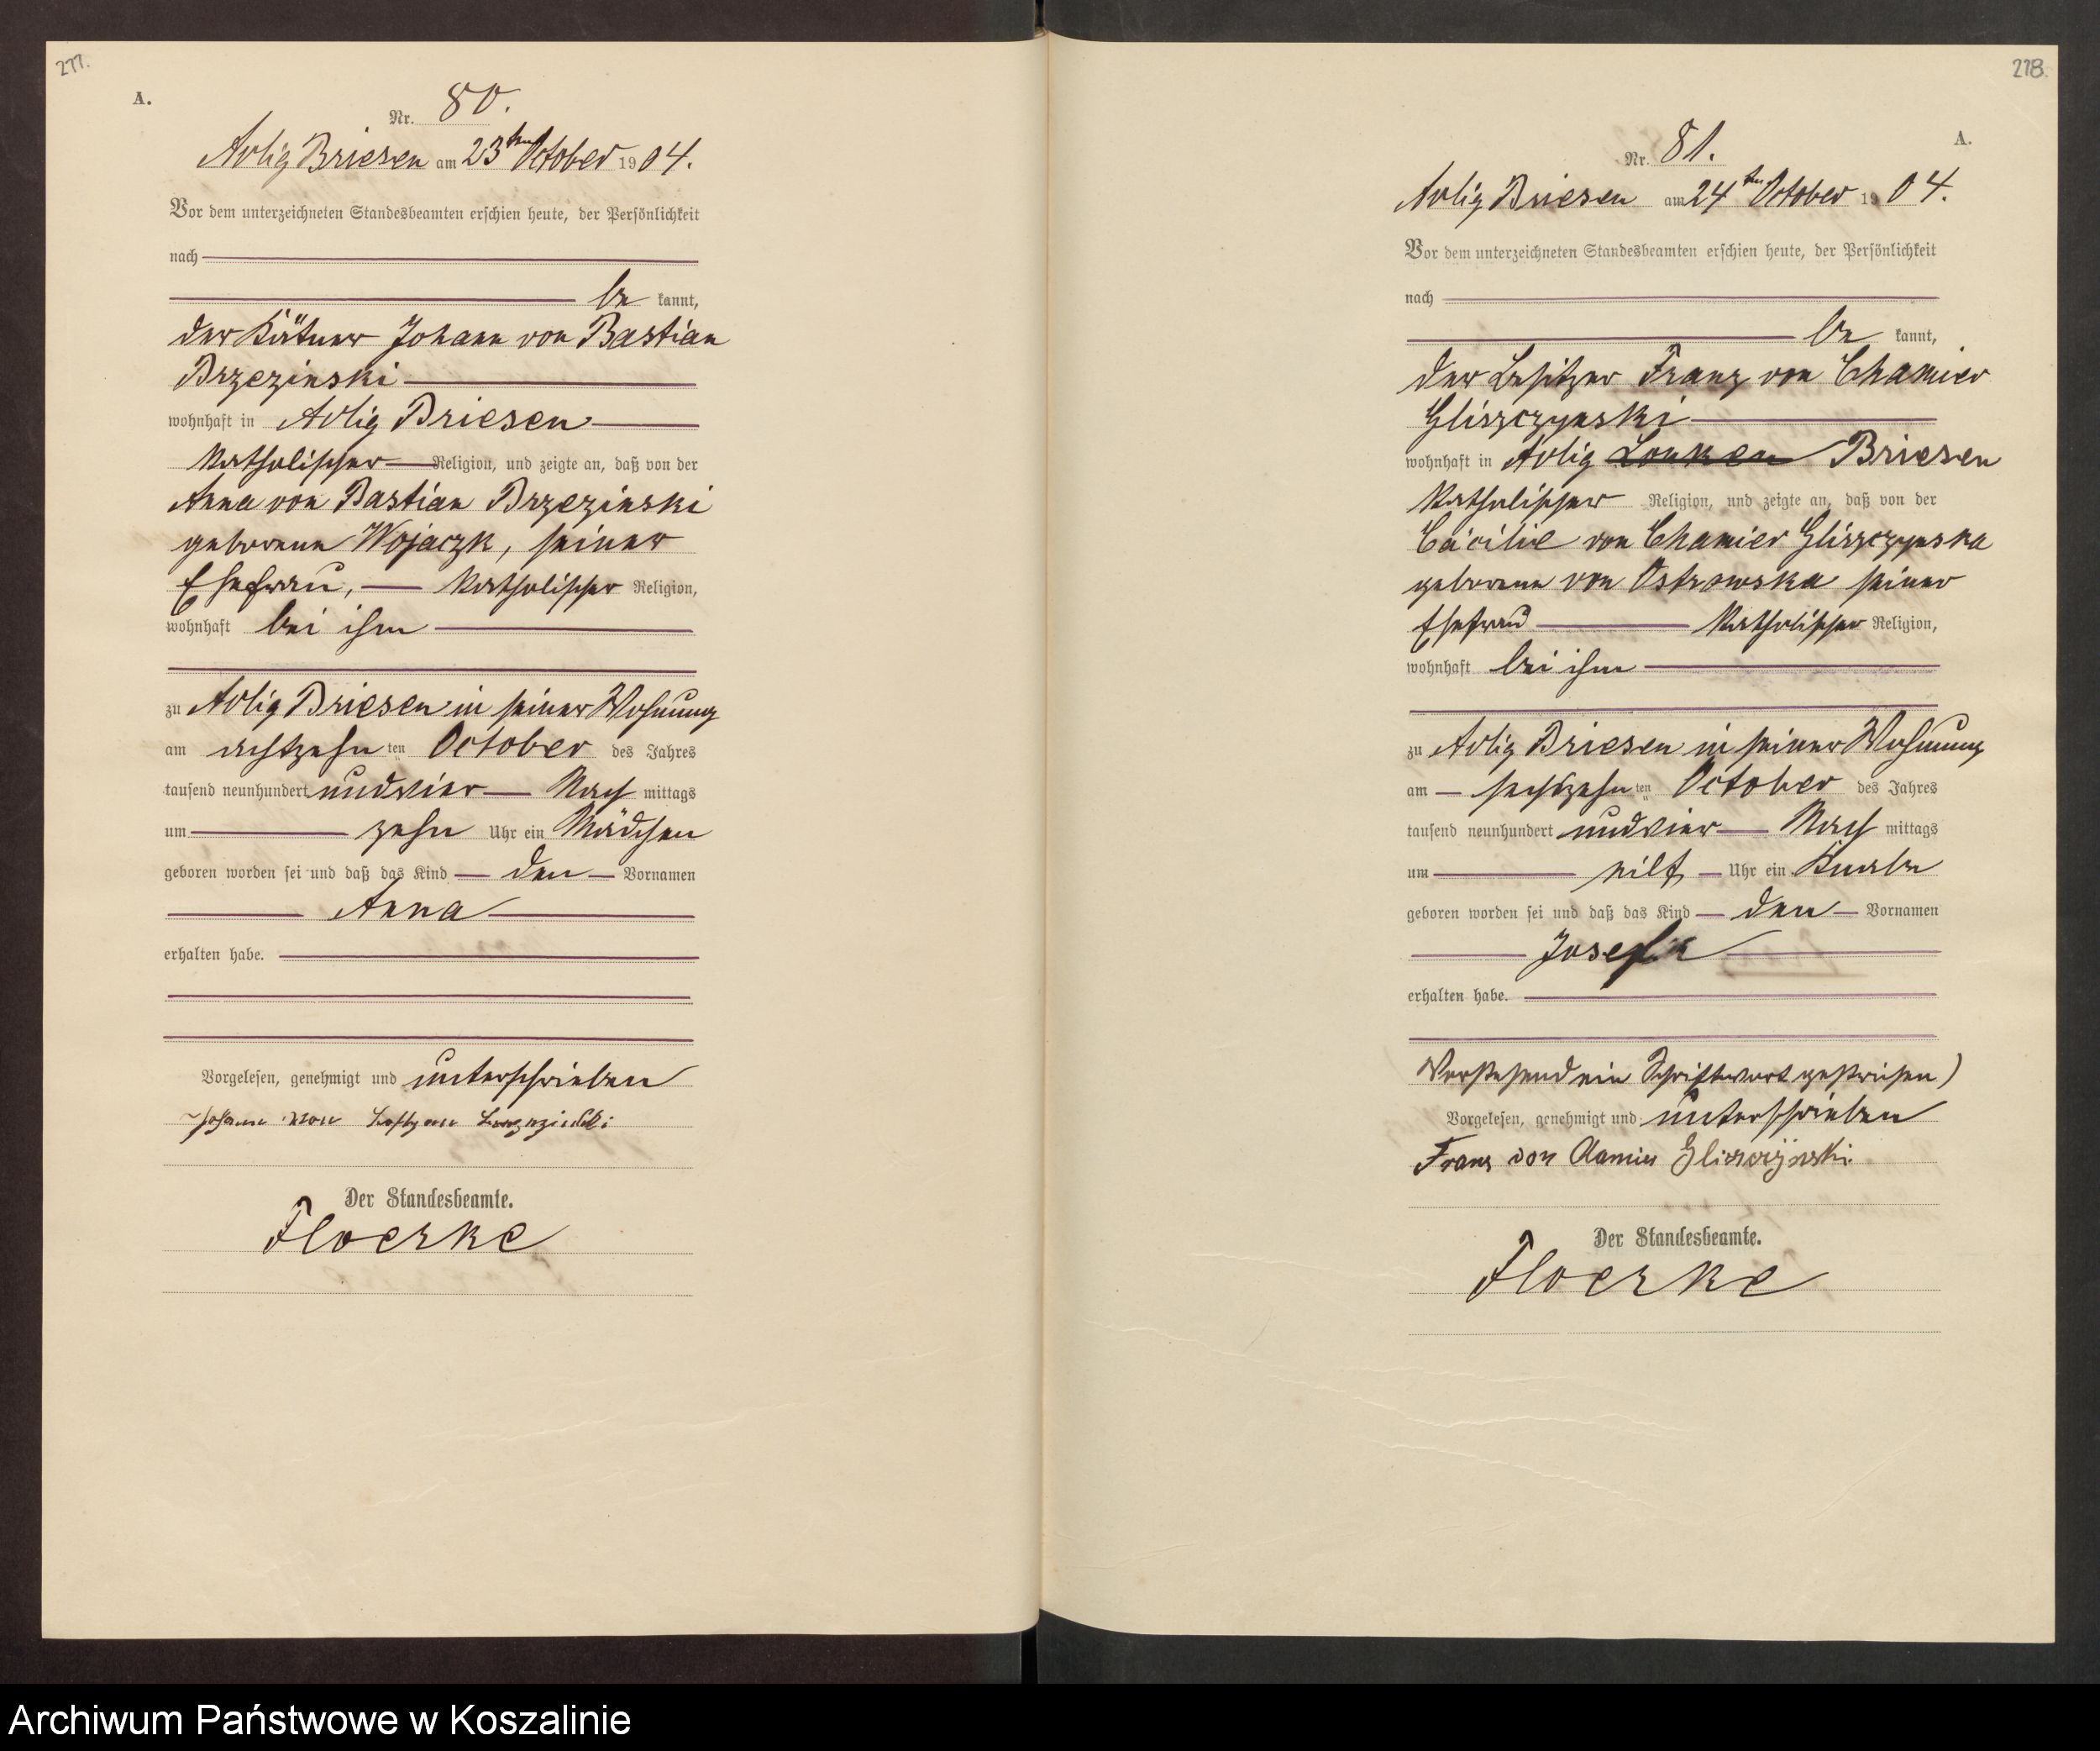 277.
A.
Nr. 80.
Adlig Briesen am 23ten October 1904.
Vor dem unterzeichneten Standesbeamten erschien heute, der Persönlichkeit
nach
be kannt,
der Kätner Johann von Bastian
Brzezinski
wohnhaft in Adlig Briesen
katholischer Religion, und zeigte an, daß von der
Anna von Bastian Brzezinski
geborenen Wojaczk, seiner
Ehefrau, katholischer Religion,
wohnhaft bei ihm
zu Adlig Briesen in seiner Wohnung
am achtzehn ten October des Jahres
tausend neunhundert und vier Nach mittags
um zehn Uhr ein Mädchen
geboren worden sei und daß das Kind den Vornamen
Anna
erhalten habe.
Vorgelesen, genehmigt und unterschrieben
Johann von
Der Standesbeamte.
Floerke
278.
A.
Nr. 81.
Adlig Briesen am 24ten October 1904.
Vor dem unterzeichneten Standesbeamten erschien heute, der Persönlichkeit
nach
be kannt,
der Besitzer Franz von Chamier
Gliszczynski
wohnhaft in Adlig Lonken Briesen
katholischer Religion, und zeigte an, daß von der
Cäcilie von Chamier Gliszczynska
geborenen von Ostrowska seiner
Ehefrau katholischer Religion,
wohnhaft bei ihm
zu Adlig Briesen in seiner Wohnung
am sechszehn ten October des Jahres
tausend neunhundert und vier Nach mittags
um eilf Uhr ein Knabe
geboren worden sei und daß das Kind den Vornamen
Josef
erhalten habe.
Vorstehend ein Schriftwort gestrichen)
Vorgelesen, genehmigt und unterschrieben
Franz von
Der Standesbeamte.
Floerke
Archiwum Państwowe w Koszalinie